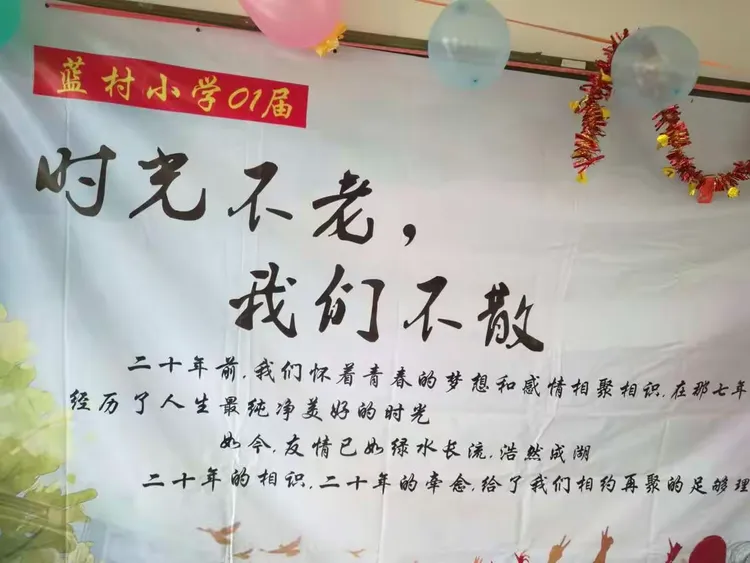 蓝村小学01届
时光不老，
我们不散
二十年前,我们怀着青春的梦想和感情相聚相识,在那七年
经历了人生最纯净美好的时光
如今,友情已如绿水长流,浩然成湖
二十年的相识,二十年的牵念,给了我们相约再聚的足够理